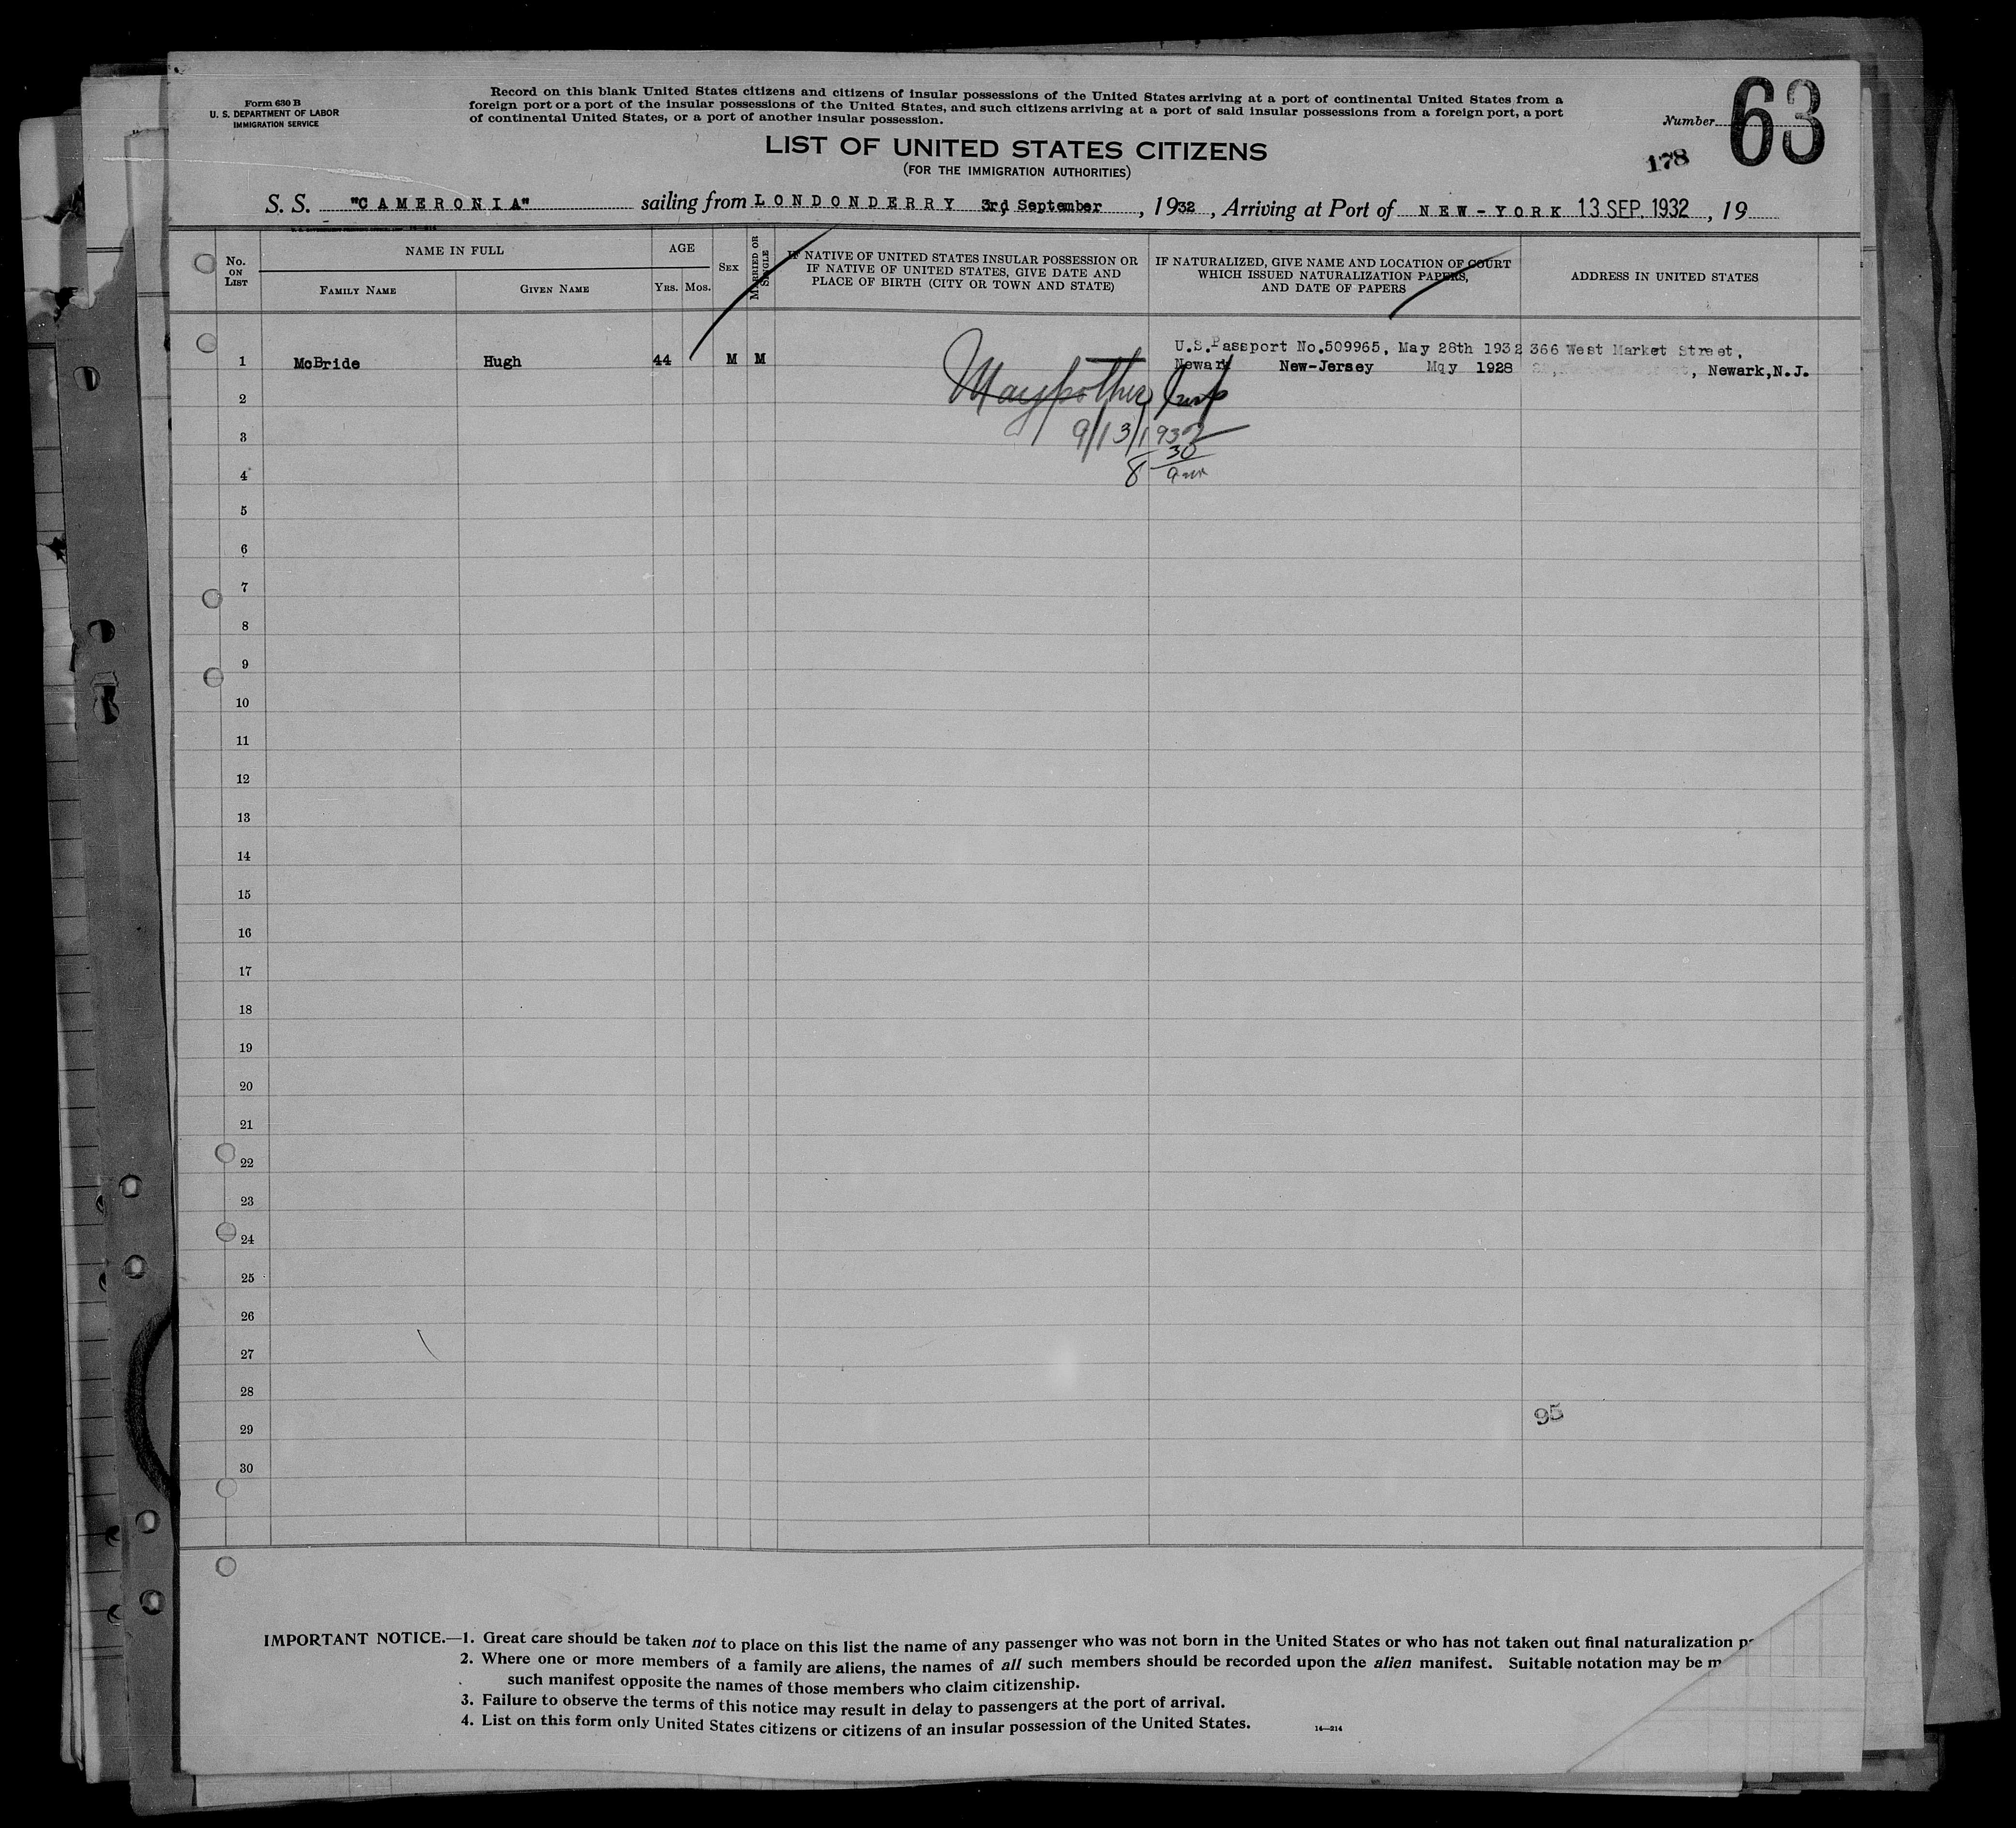 Form 630 B
U. S. DEPARTMENT OF LABOR
IMMIGRATION SERVICE
Record on this blank United States citizens and citizens of insular possessions of the United States arriving at a port of continental United States from a
foreign port or a port of the insular possessions of the United States, and such citizens arriving at a port of said insular possessions from a foreign port, a port
of continental United States, or a port of another insular possession.
Number 63
178
LIST OF UNITED STATES CITIZENS
(FOR THE IMMIGRATION AUTHORITIES)
S. S. "CAMERONIA" sailing from LONDONDERRY 3rd September, 1932, Arriving at Port of NEW-YORK 13 SEP. 1932, 19
No. ON LIST
NAME IN FULL
FAMILY NAME
GIVEN NAME
AGE
YRS.
MOS.
SEX
MARRIED OR SINGLE
IF NATIVE OF UNITED STATES INSULAR POSSESSION OR
IF NATIVE OF UNITED STATES, GIVE DATE AND
PLACE OF BIRTH (CITY OR TOWN AND STATE)
IF NATURALIZED, GIVE NAME AND LOCATION OF COURT
WHICH ISSUED NATURALIZATION PAPERS,
AND DATE OF PAPERS
ADDRESS IN UNITED STATES
U.S.Passport No.509965, May 28th 1932 366 West Market Street,
1 McBride Hugh 44 M M Newark New-Jersey Mqy 1928 , Newark,N.J.
2
9/13/1932
3
8 30
am
4
5
6
7
8
9
10
11
12
13
14
15
16
17
18
19
20
21
22
23
24
25
26
27
28
95
29
30
IMPORTANT NOTICE.—1. Great care should be taken not to place on this list the name of any passenger who was not born in the United States or who has not taken out final naturalization
2. Where one or more members of a family are aliens, the names of all such members should be recorded upon the alien manifest. Suitable notation may be
such manifest opposite the names of those members who claim citizenship.
3. Failure to observe the terms of this notice may result in delay to passengers at the port of arrival.
4. List on this form only United States citizens or citizens of an insular possession of the United States.
14—214